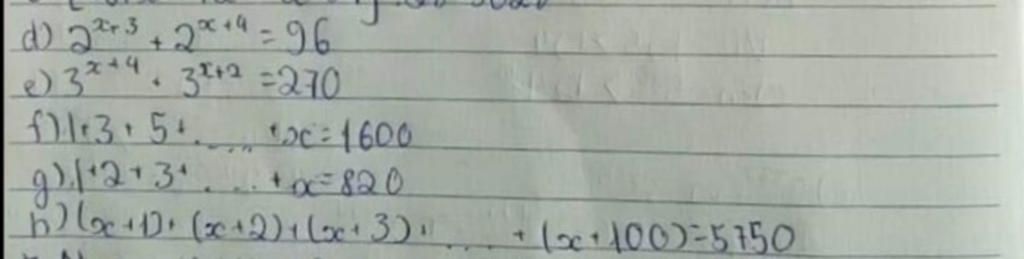 d) 2^{x+3} + 2^{x+4} = 96
e) 3^{x+4} + 3^{x+2} = 270
f) 1+3+5+ ..... +x = 1600
g) 1+2+3+ .... +x = 820
h) (x+1)+(x+2)+(x+3)+ ..... +(x+100)=5750